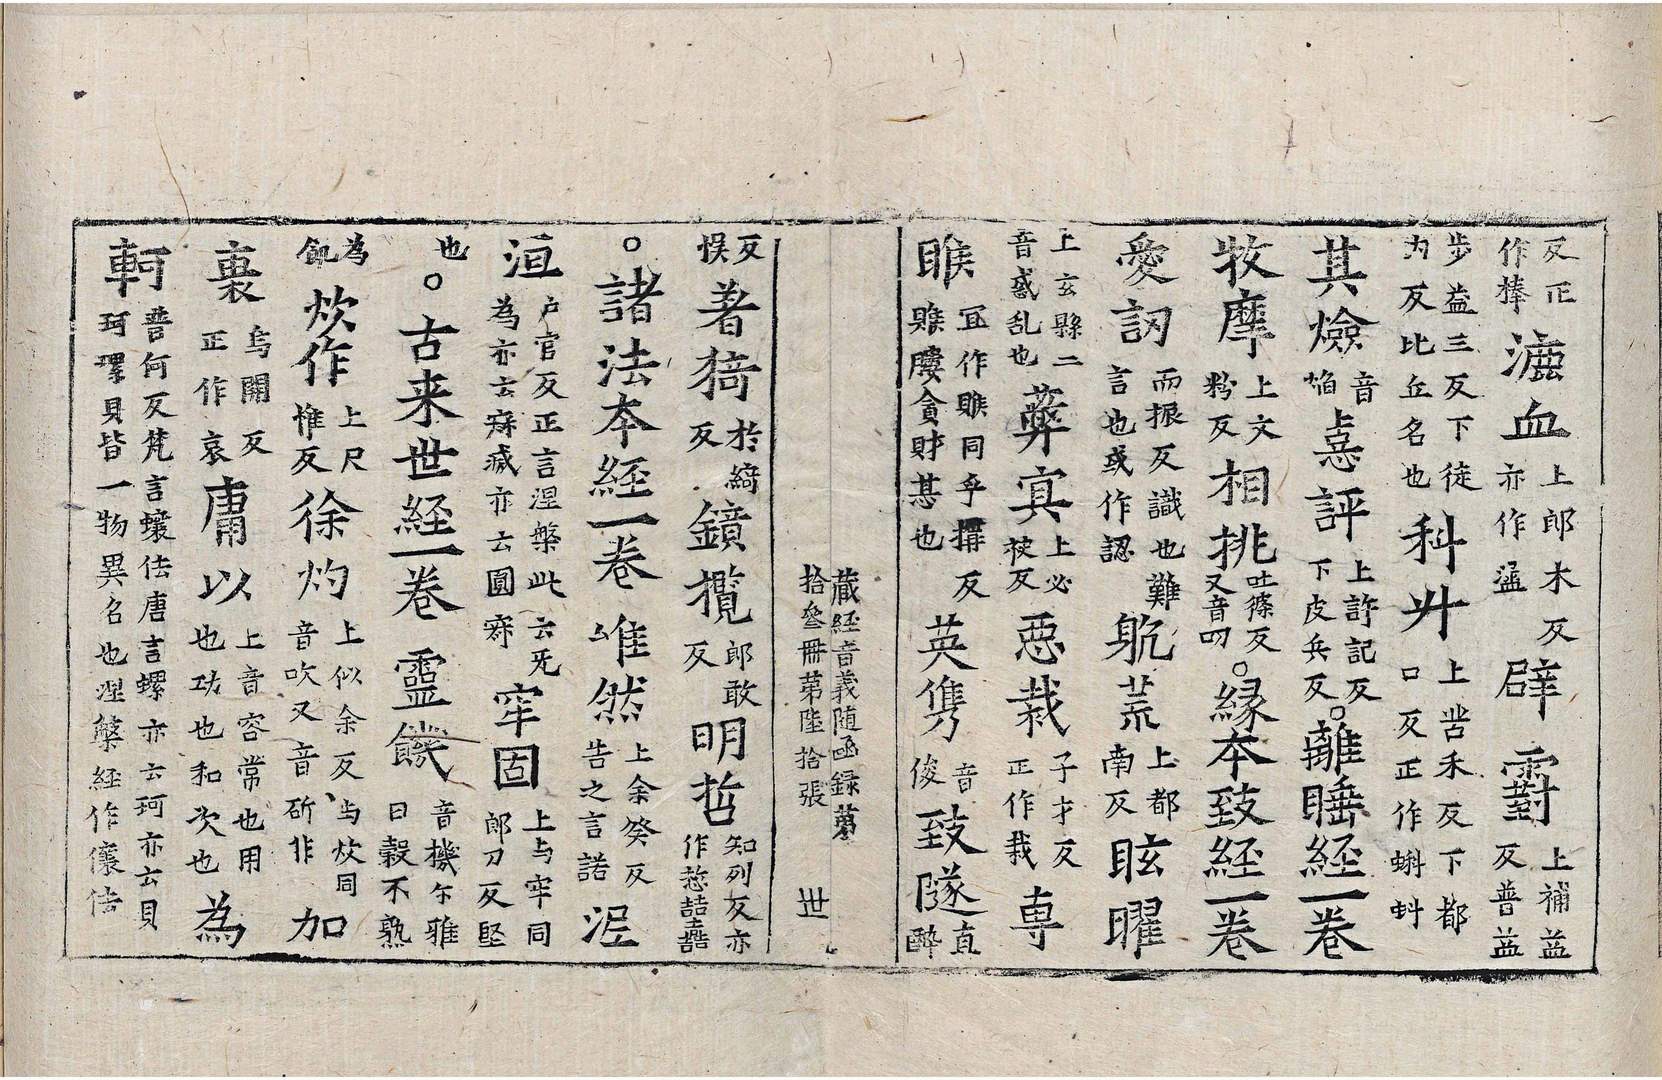 反正作棒漉血上郎木反亦作盝躃霸上補益反普益
步益三反下徒内反比丘名也科斗上苦禾反下都口反正作蝌蚪
其燄音焰憙評上許記反下皮兵反○離睡經一卷
牧摩上文粉反相挑吐篠反又音㓜○緣本致經一卷
愛訒而振反識也難言也或作認躭荒上都南反眩曜
上玄縣二音惑乱也蔽寘上必袂反惡栽子才反正作栽専
䀢冝作䞀同乎搆反䞀䝏貪財甚也英儁音俊致隧直醉
藏經音義隨函録苐拾叁冊苐陸拾張 世
反悮著猗於綺反鏡攬郎敢反明哲知列反亦作悊喆嚞
○諸法本經一卷唯然上余癸反告之言諾泥
洹户官反正言涅槃此云无為亦云寂滅亦云圓寂牢固上与牢同郎刀反堅
也○古来世經一卷靈饑音機尒雅曰穀不熟
為飢炊作上尺惟反徐灼上似余反与炊同音吹又音斫作加
裏烏開反正作哀庸以上音容常也用也功也和次也為
軻普何反梵言蠰佉唐言螺亦云珂亦云貝珂㻔貝皆一物異名也涅槃經作儴佉